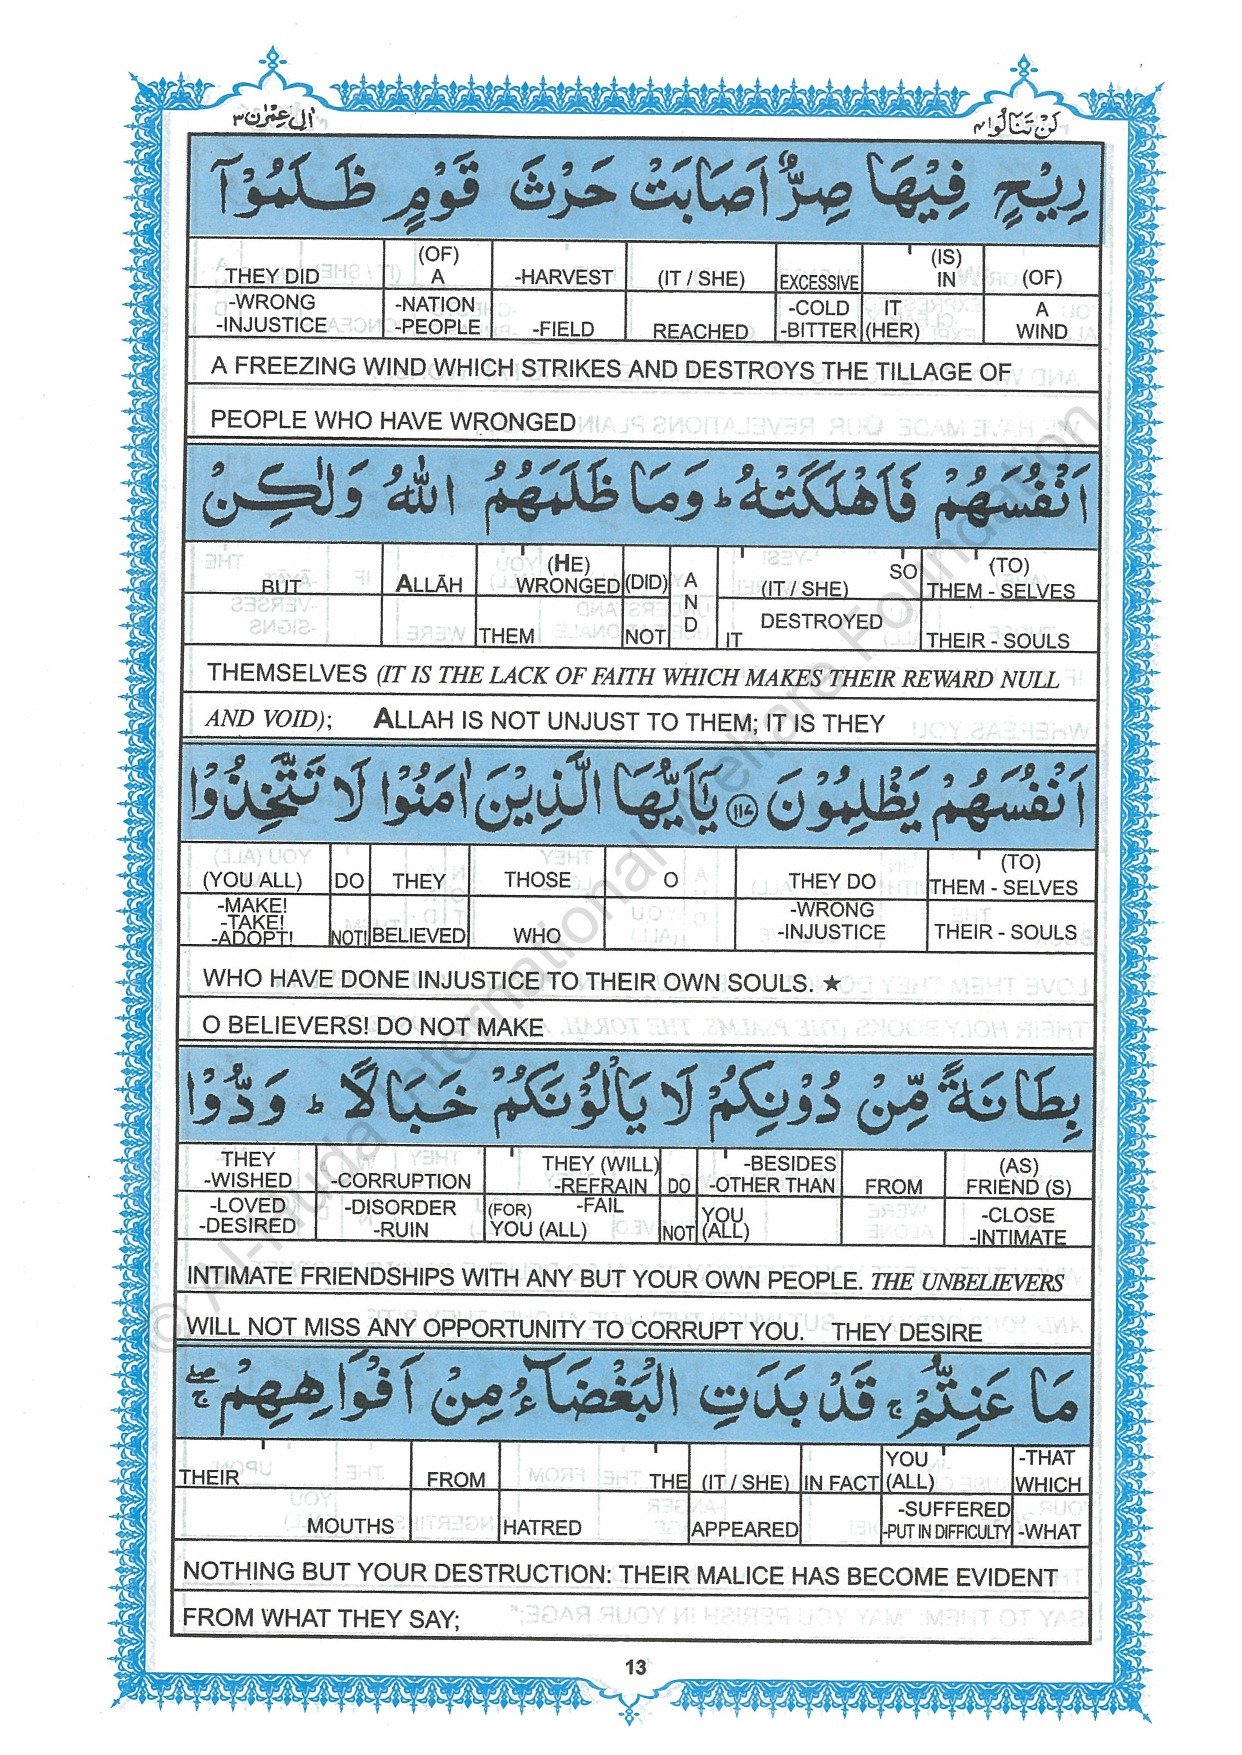 لَنْ تَنَالُوا ۴
اٰلِ عِمْرٰن ۳
رِيْحٍ فِيْهَا صِرٌّ اَصَابَتْ حَرْثَ قَوْمٍ ظَلَمُوْٓا
THEY DID (OF) A -HARVEST (IT / SHE) EXCESSIVE (IS) IN (OF)
-WRONG -INJUSTICE -NATION -PEOPLE -FIELD REACHED -COLD -BITTER IT (HER) A WIND
A FREEZING WIND WHICH STRIKES AND DESTROYS THE TILLAGE OF
PEOPLE WHO HAVE WRONGED
اَنْفُسَهُمْ فَاَهْلَكَتْهُ ؕ وَمَا ظَلَمَهُمُ اللّٰهُ وَلٰكِنْ
BUT ALLĀH (HE) WRONGED (DID) AND (IT / SHE) SO (TO) THEM - SELVES
THEM NOT IT DESTROYED THEIR - SOULS
THEMSELVES (IT IS THE LACK OF FAITH WHICH MAKES THEIR REWARD NULL
AND VOID); ALLAH IS NOT UNJUST TO THEM; IT IS THEY
اَنْفُسَهُمْ يَظْلِمُوْنَ ﴿۱۱۷﴾ يٰٓاَيُّهَا الَّذِيْنَ اٰمَنُوْا لَا تَتَّخِذُوْا
(YOU ALL) DO THEY THOSE O THEY DO (TO) THEM - SELVES
-MAKE! -TAKE! -ADOPT! NOT! BELIEVED WHO -WRONG -INJUSTICE THEIR - SOULS
WHO HAVE DONE INJUSTICE TO THEIR OWN SOULS. ★
O BELIEVERS! DO NOT MAKE
بِطَانَةً مِّنْ دُوْنِكُمْ لَا يَاْلُوْنَكُمْ خَبَالًا ؕ وَدُّوْا
THEY -WISHED -CORRUPTION THEY (WILL) -REFRAIN DO -BESIDES -OTHER THAN FROM (AS) FRIEND (S)
-LOVED -DESIRED -DISORDER -RUIN (FOR) YOU (ALL) -FAIL NOT YOU (ALL) -CLOSE -INTIMATE
INTIMATE FRIENDSHIPS WITH ANY BUT YOUR OWN PEOPLE. THE UNBELIEVERS
WILL NOT MISS ANY OPPORTUNITY TO CORRUPT YOU. THEY DESIRE
مَا عَنِتُّمْ ۚ قَدْ بَدَتِ الْبَغْضَآءُ مِنْ اَفْوَاهِهِمْ ۖۚ
THEIR FROM THE (IT / SHE) IN FACT YOU (ALL) -THAT WHICH
MOUTHS HATRED APPEARED -SUFFERED -PUT IN DIFFICULTY -WHAT
NOTHING BUT YOUR DESTRUCTION: THEIR MALICE HAS BECOME EVIDENT
FROM WHAT THEY SAY;
13
© Al-Huda International Welfare Foundation